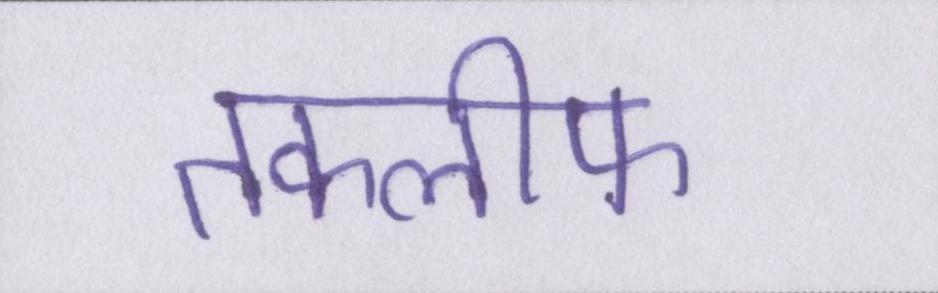 तकलीफ